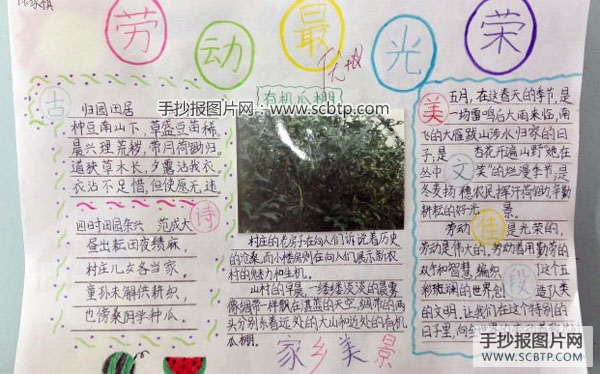 劳动最光荣
优
古
诗
归园田居
种豆南山下,草盛豆苗稀。
晨兴理荒秽,带月荷锄归。
道狭草木长,夕露沾我衣。
衣沾不足惜,但使愿无违
四时田园杂兴 范成大
昼出耘田夜绩麻,
村庄儿女各当家。
童孙未解供耕织,
也傍桑阴学种瓜。
有机瓜棚
手抄报图片网:
www.scbtp.com
村庄的老房子在向人们诉说着历史
的沧桑,而小楼房则在向人们展示新农
村的魅力和生机。
山村的早晨,一缕缕淡淡的晨雾
像绸带一样飘在湛蓝的天空,绸带的两
头分别系着远处的大山和近处的有机
瓜棚。
家乡美景
美文佳段
五月,在这春天的季节,是
一场雷鸣后大雨来临,南
飞的大雁跋山涉水归家的日
子,是 杏花开遍山野"她在
丛中 笑"的烂漫季节,是
冬麦扬穗,农民挥汗荷锄,辛勤
耕耘的好光 景。
劳动 是光荣的,
劳动是伟大的。劳动者用勤劳的
双手和智慧,编织 了这个五
彩斑斓的世界,创 造人类
的文明,让我们在这个特别的
日子里,向
手抄报图片网
WWW.SCBTP.COM